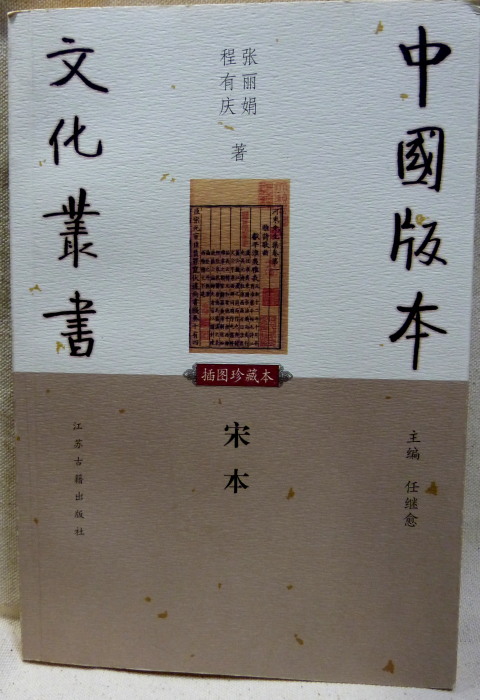 中國版本
文化叢書
张丽娟
程有庆
著
插图珍藏本
宋本
主编 任继愈
江苏古籍出版社